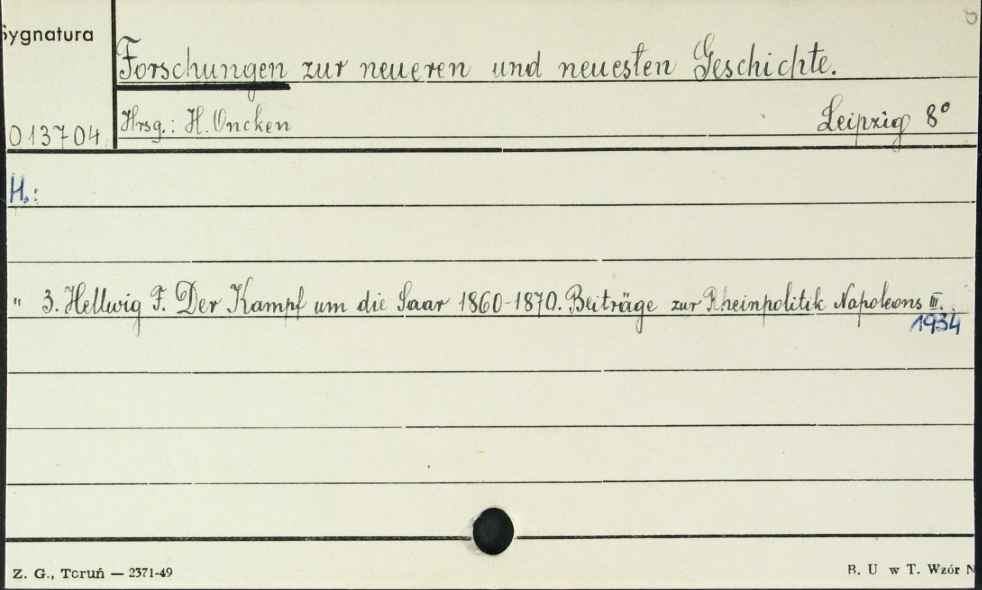 Sygnatura
Forschungen zur neueren und neuesten Geschichte.
013704 Hrsg.: H. Oncken Leipzig 8°
H.:
" 3. Hellwig F. Der Kampf um die Saar 1860-1870. Beiträge zur Rheinpolitik Napoleons III.
1934
Z. G., Toruń — 2371-49 B. U w T. Wzór N